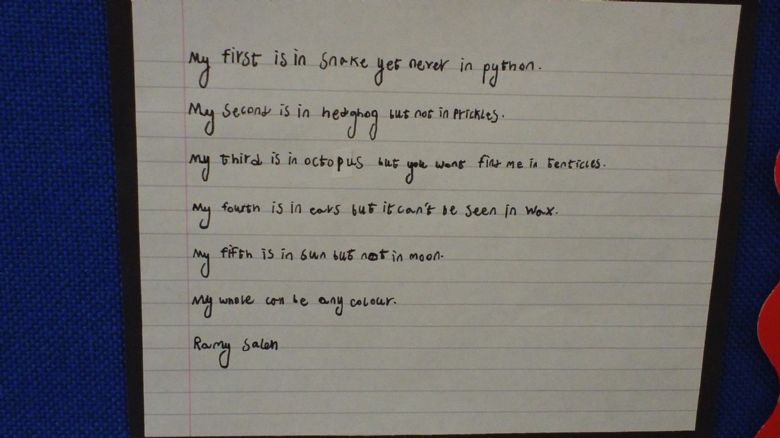 My first is in snake yet never in python.
My second is in hedghog but not in prickles.
My third is in octopus but you wont find me in tenticles.
My fourth is in ears but it can't be seen in wax.
My fifth is in sun but not in moon.
My whole can be any colour.
Ramy Saleh